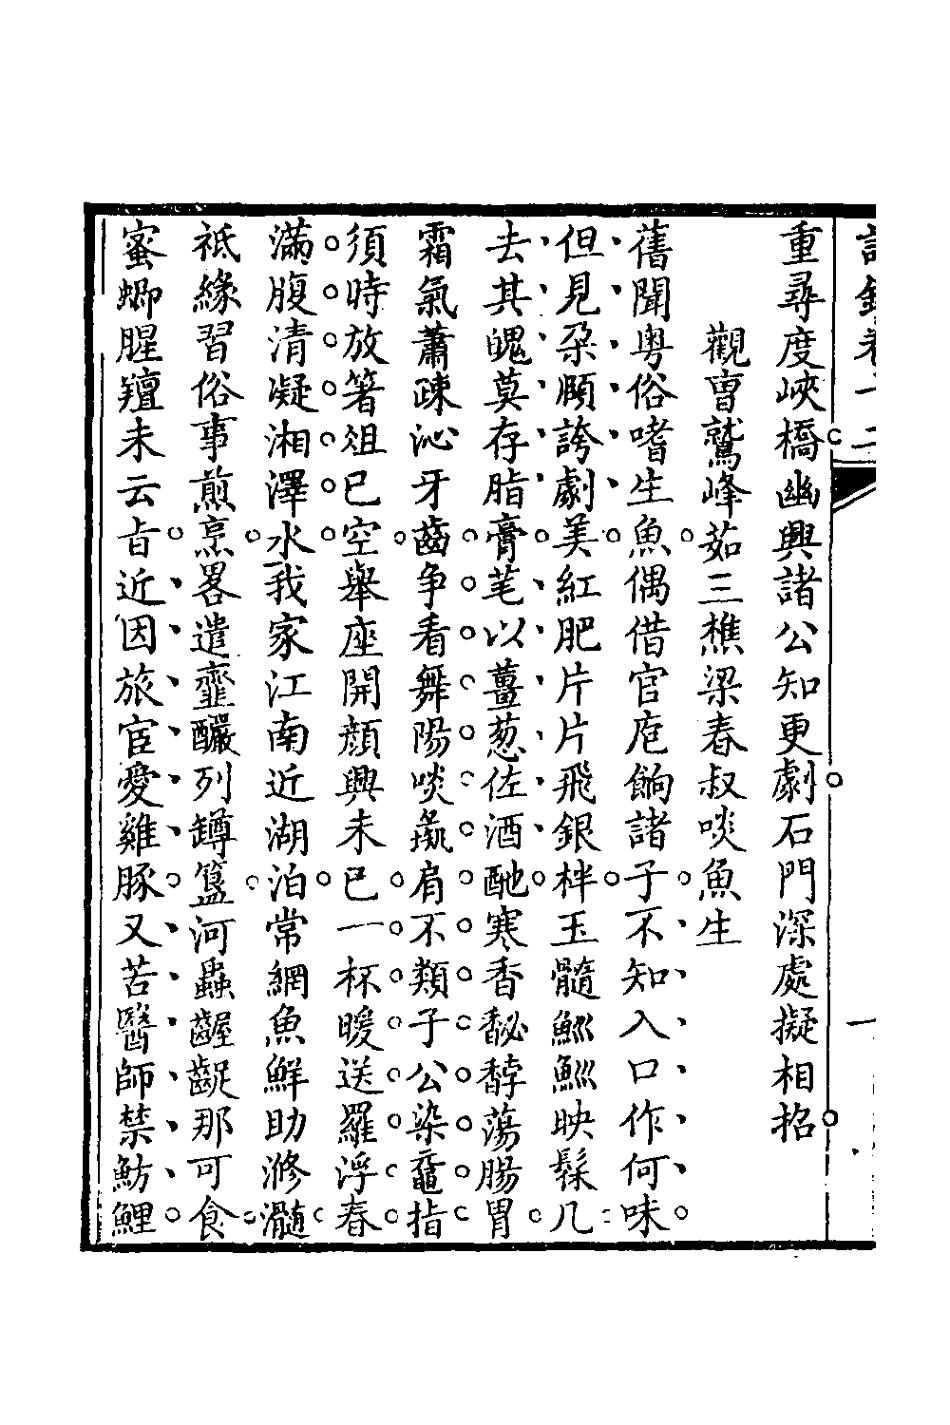 重尋度峽橋幽興諸公知更劇石門深處擬相招
觀曺鷲峰茹三樵梁春叔啖魚生
舊聞粵俗嗜生魚偶借官庖餉諸子不知入口作何味
但見朶頤誇劇美紅肥片片飛銀柈玉髓鱻鱻映髹几
去其醜莫存脂膏芼以薑葱佐酒酏寒香馝馞蕩腸胃
霜氣蕭疎沁牙齒争看舞陽啖彘肩不類子公染黿指
須時放箸俎已空舉座開顏興未已一杯暖送羅浮春
滿腹清凝湘澤水我家江南近湖泊常網魚鮮助滫瀡
祗緣習俗事煎烹畧遣虀釅列罇簋河蟲齷齪那可食
蜜蝍腥羶未云旨近因旅宦愛雞豚又苦醫師禁魴鯉